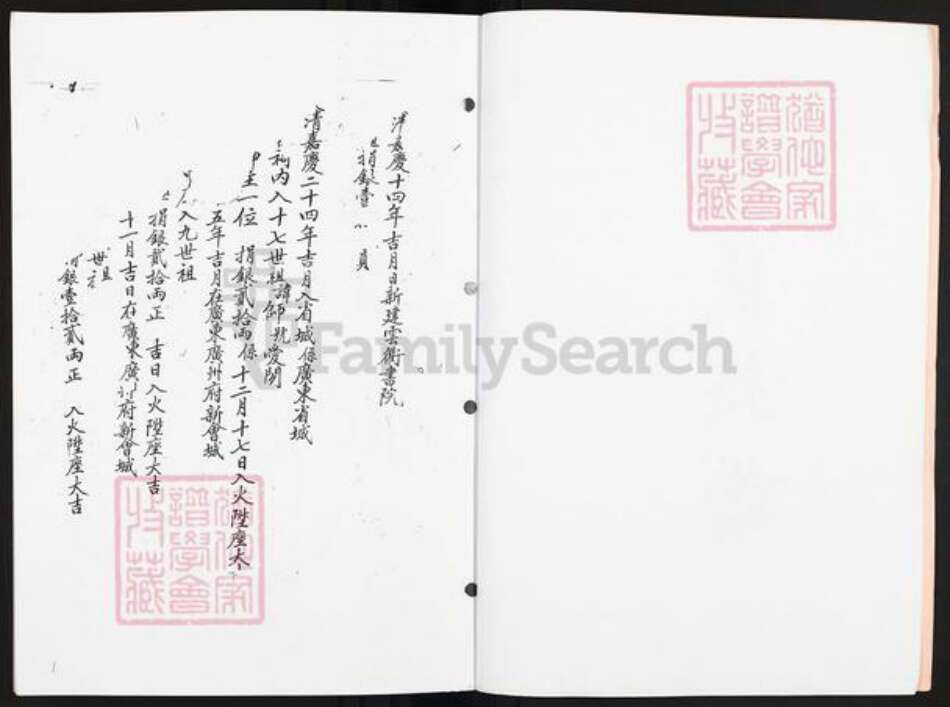 嘉慶十四年吉月日新建雲衢書院
捐銀壹 員
清嘉慶二十四年吉月入省城係廣東省城
祠內入十七世祖諱師號愛閒
主一位 捐銀貳拾兩係十二月十七日入火陞座大
五年吉月在廣東廣州府新會城
入九世祖
捐銀貳拾兩正 吉日入火陞座大吉
十一月吉日在廣東廣府新會城
世祖
銀壹拾貳兩正 入火陞座大吉
譜學會
收藏
譜學會
收藏
FamilySearch